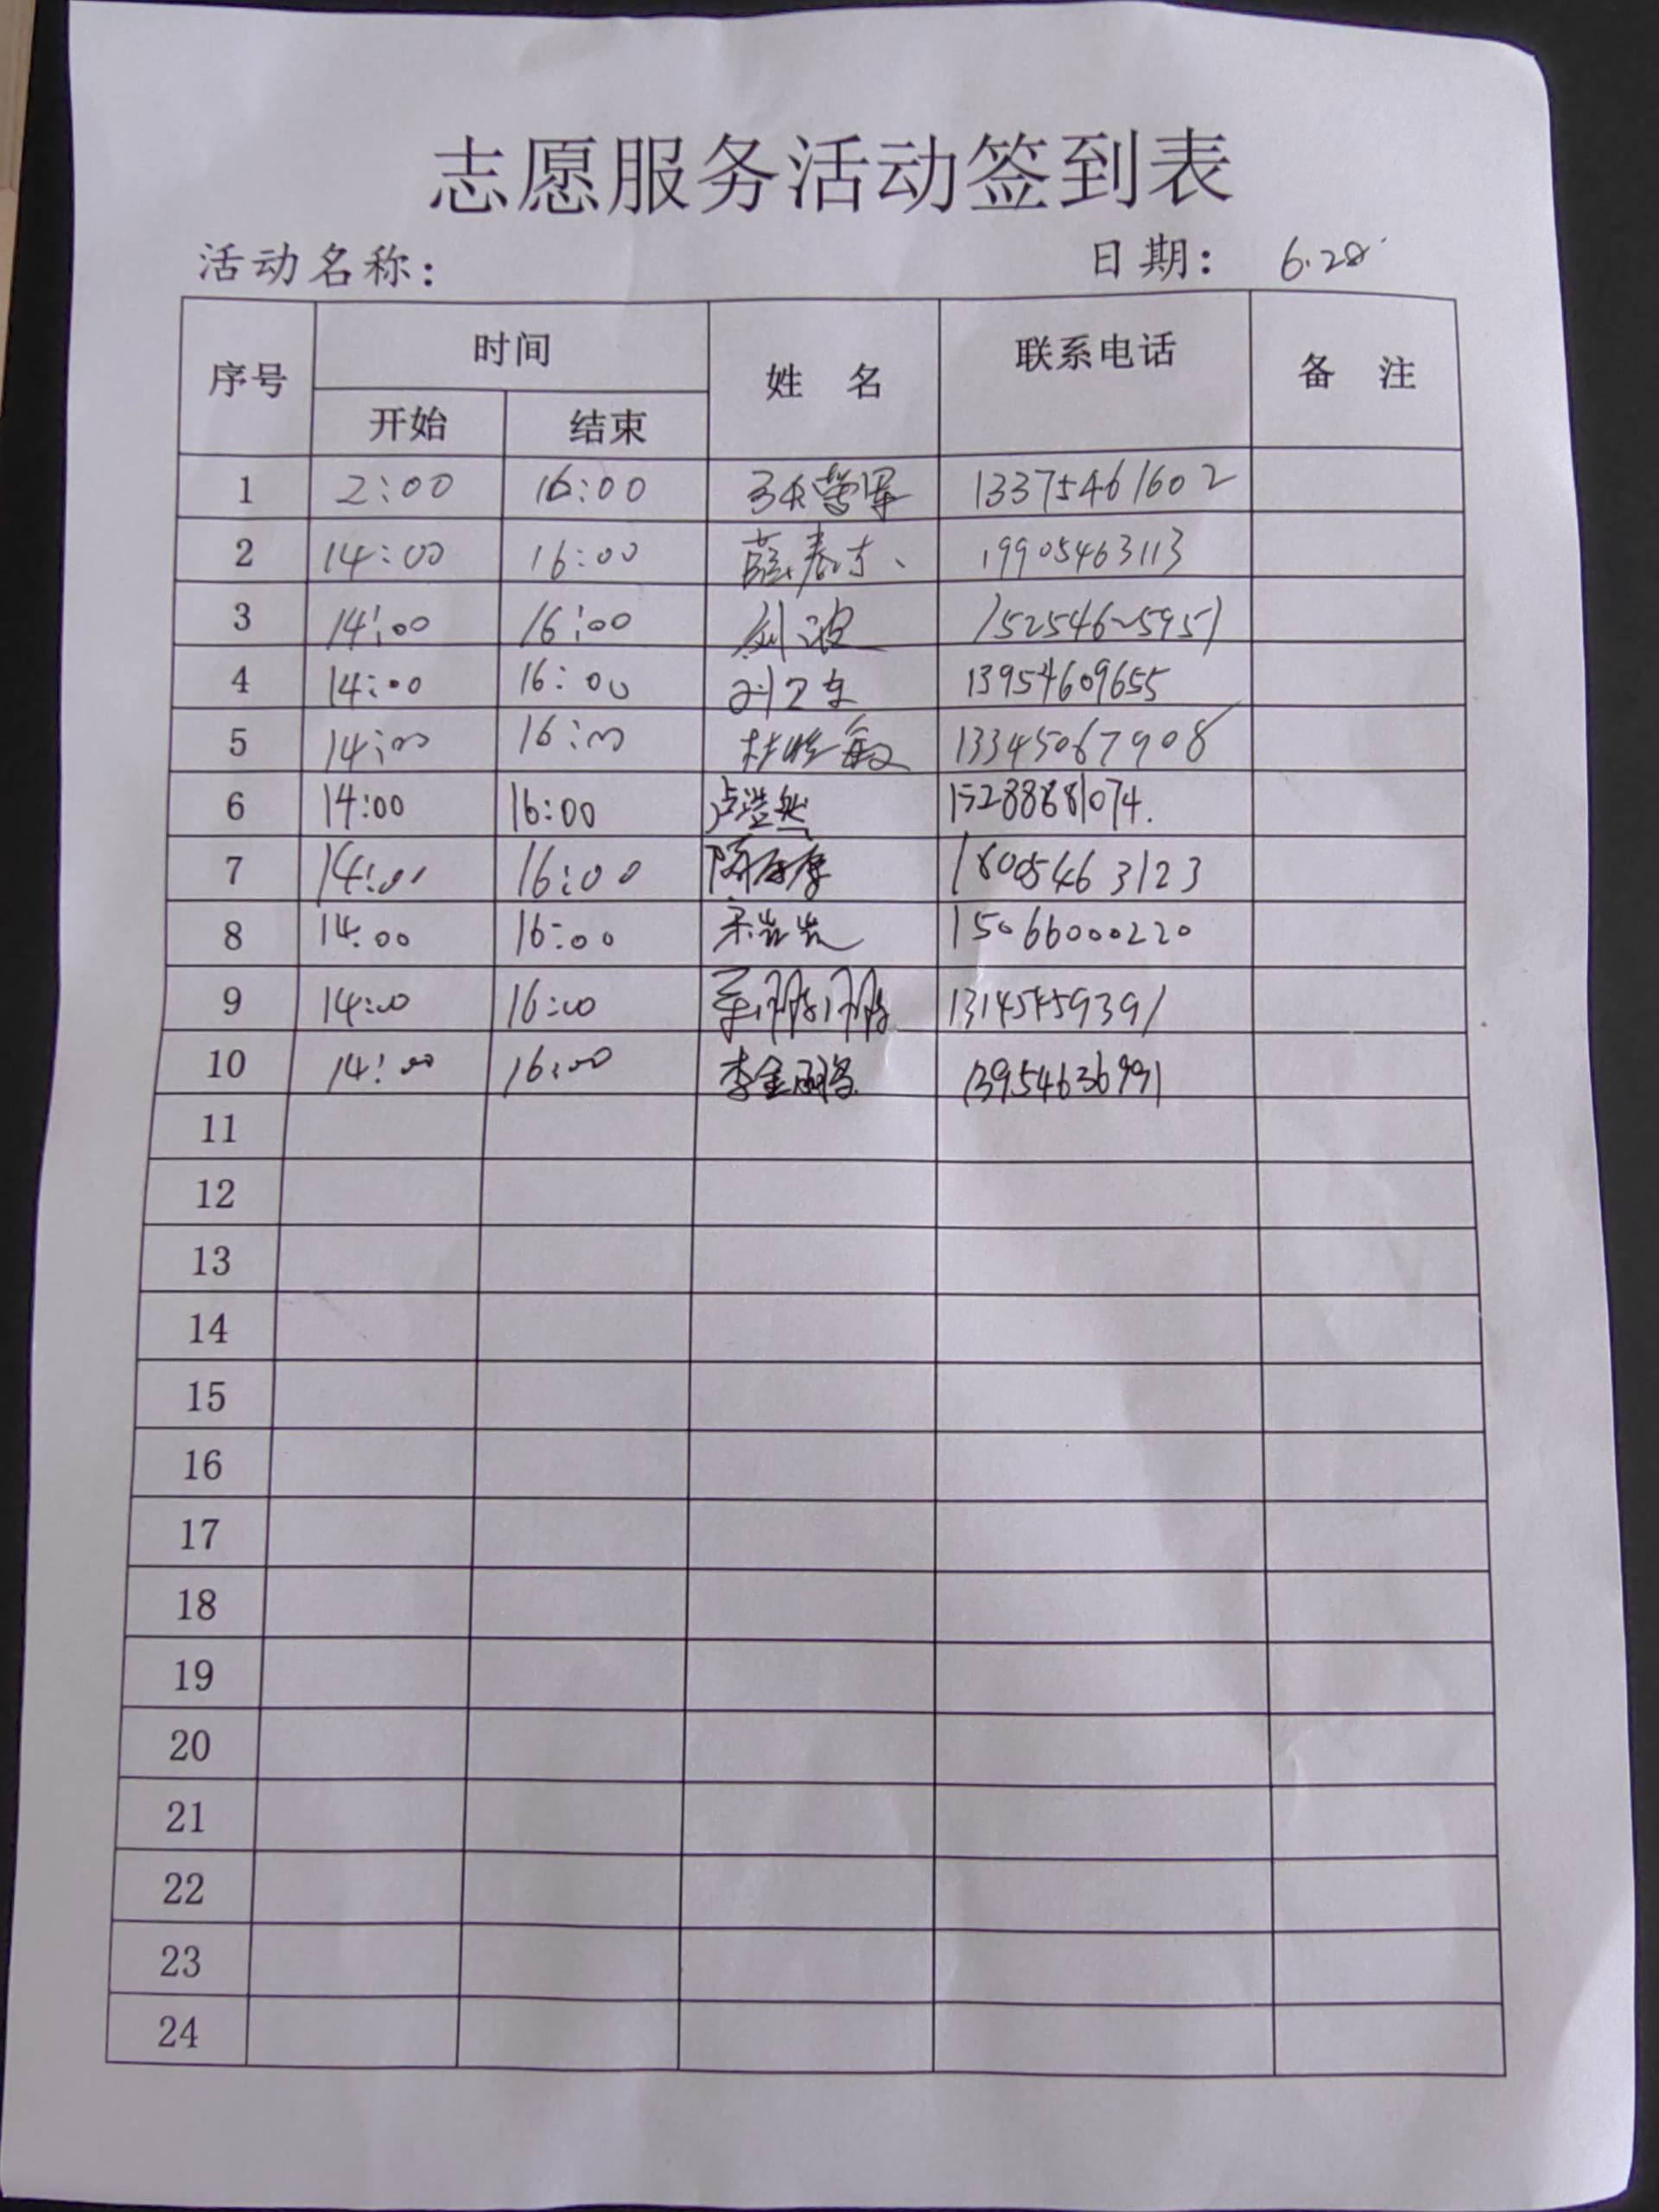 志愿服务活动签到表
活动名称： 日期： 6.28
序号 时间 姓 名 联系电话 备 注
开始 结束
1 2:00 16:00 13375461602
2 14:00 16:00 薛春才 19905463113
3 14:00 16:00 刘波 15254625951
4 14:00 16:00 13954609655
5 14:00 16:00 杜晓敏 13345067908
6 14:00 16:00 卢浩然 15288881074.
7 14:00 16:00 18005463123
8 14:00 16:00 宋岩岩 15066000220
9 14:00 16:00 13145459391
10 14:00 16:00 李金丽 13954636991
11
12
13
14
15
16
17
18
19
20
21
22
23
24